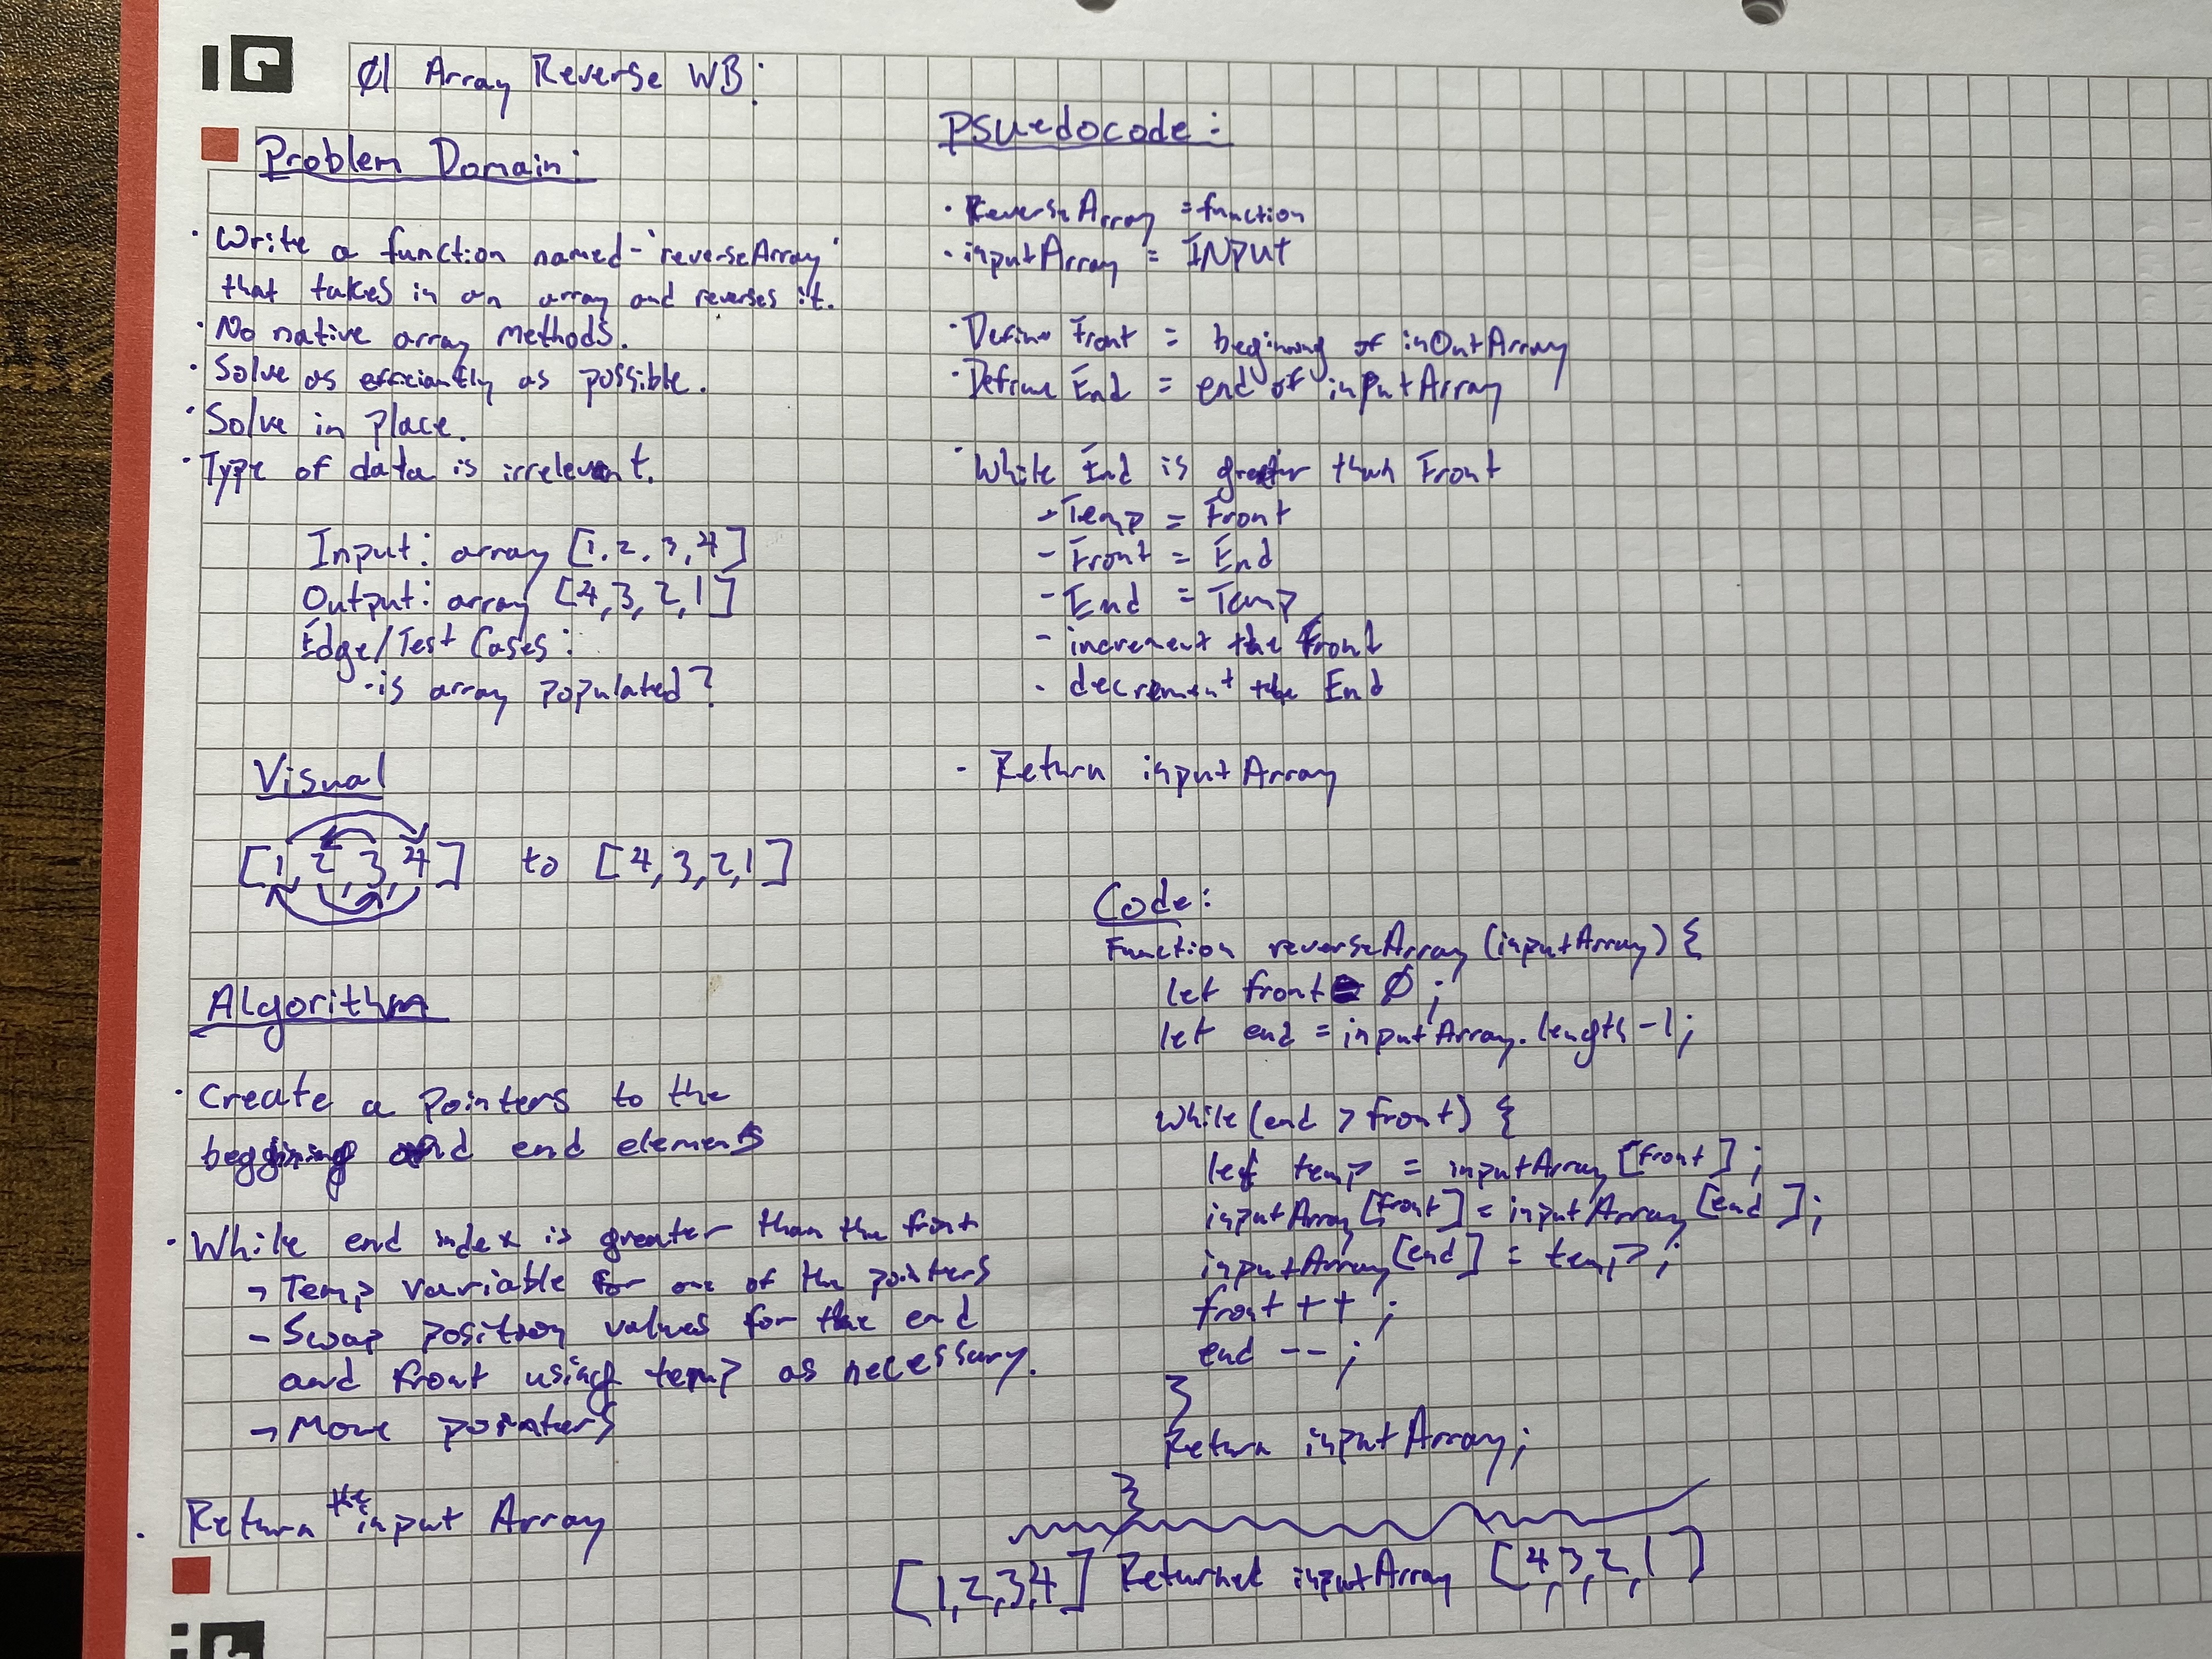 Ø1 Array Reverse WB:
Problem Domain:
· Write a function named - 'reverseArray'
that takes in an array and reverses it.
· No native array methods.
· Solve as efficiantly as possible.
· Solve in place.
· Type of data is irrelevant.
Input: array [1, 2, 3, 4]
Output: array [4, 3, 2, 1]
Edge/Test Cases:
- is array populated?
Visual
[1, 2, 3, 4] to [4, 3, 2, 1]
Algorithm
· Create a pointers to the
beggining and end elements
· While end index is greater than the front
- Temp variable for one of the pointers
- Swap position values for the end
and front using temp as necessary.
- Move pointers
· Return the input Array
Psuedocode:
· ReverseArray = function
· inputArray = INPUT
· Define Front = beginning of inOutArray
· Define End = end of inputArray
· While End is greater than Front
- Temp = Front
- Front = End
- End = Temp
- increment the Front
- decrement the End
- Return inputArray
Code:
Function reverseArray (inputArray) {
let front = Ø;
let end = inputArray.length - 1;
while (end > front) {
let temp = inputArray [front];
inputArray [front] = inputArray [end];
inputArray [end] = temp;
front ++;
end --;
}
Return inputArray;
}
[1,2,3,4] Returned inputArray [4,3,2,1]
iQ